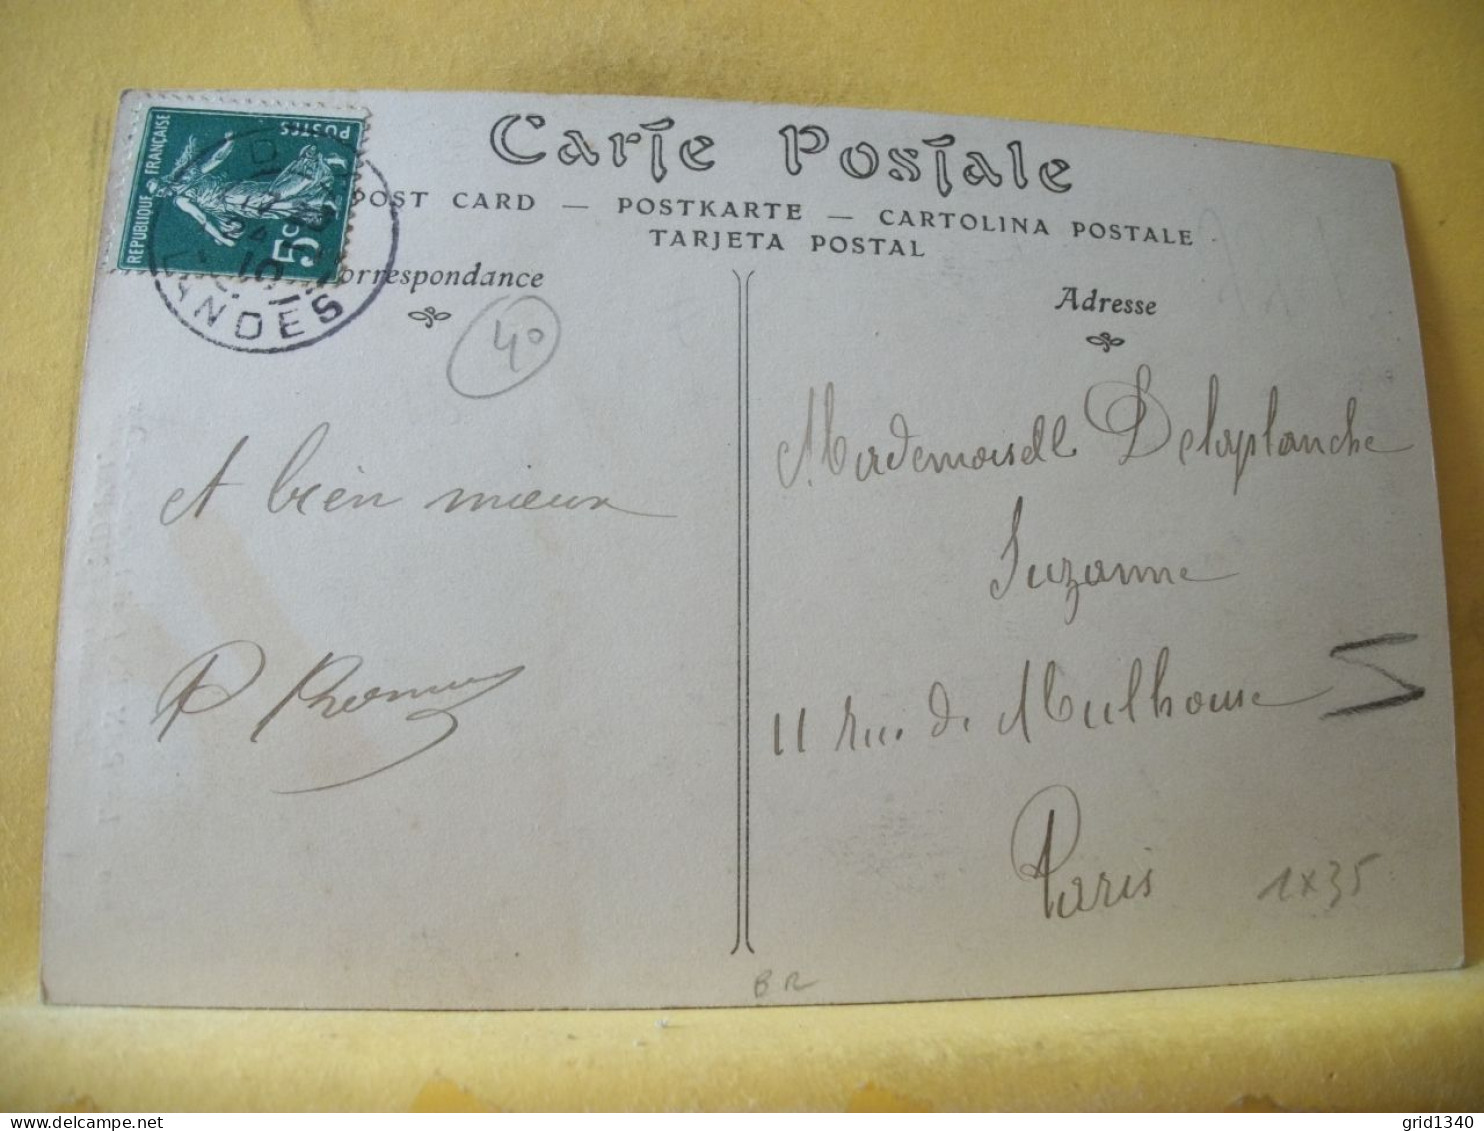 REPUBLIQUE FRANÇAISE
POSTES
5c
24
10
LANDES
Carte Postale
POST CARD — POSTKARTE — CARTOLINA POSTALE
TARJETA POSTAL
Correspondance
Adresse
40
et bien mieux
P
Mademoiselle Delaplanche
Suzanne
11 rue de Mulhouse
Paris
1x35
BR
grid1340